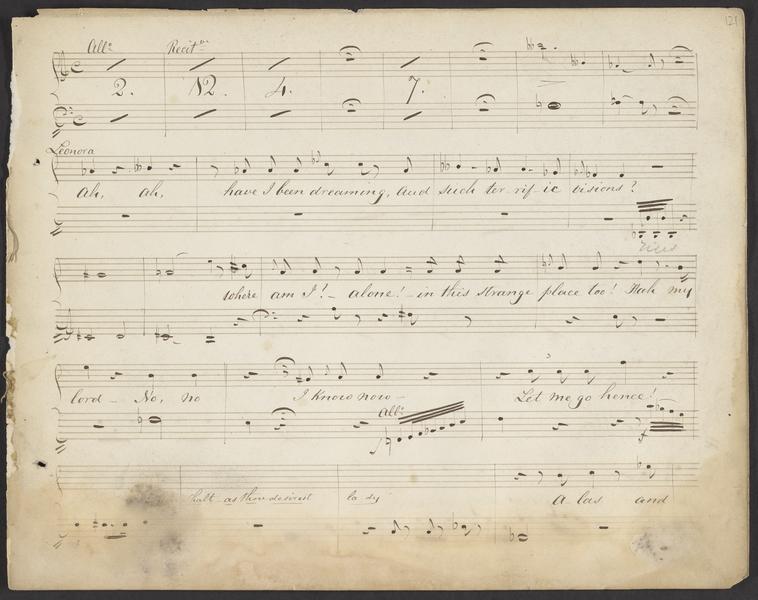 121
Allo Recitvo
2. 12. 4. 7.
Leonora
Ah, ah, have I been dreaming, and such ter-rif-ic visions?
where am I!- alone!- in this strange place too! Hah my
lord- No, no I know now-
Allo
Let me go hence!
halt as thou desirest la dy A-las and